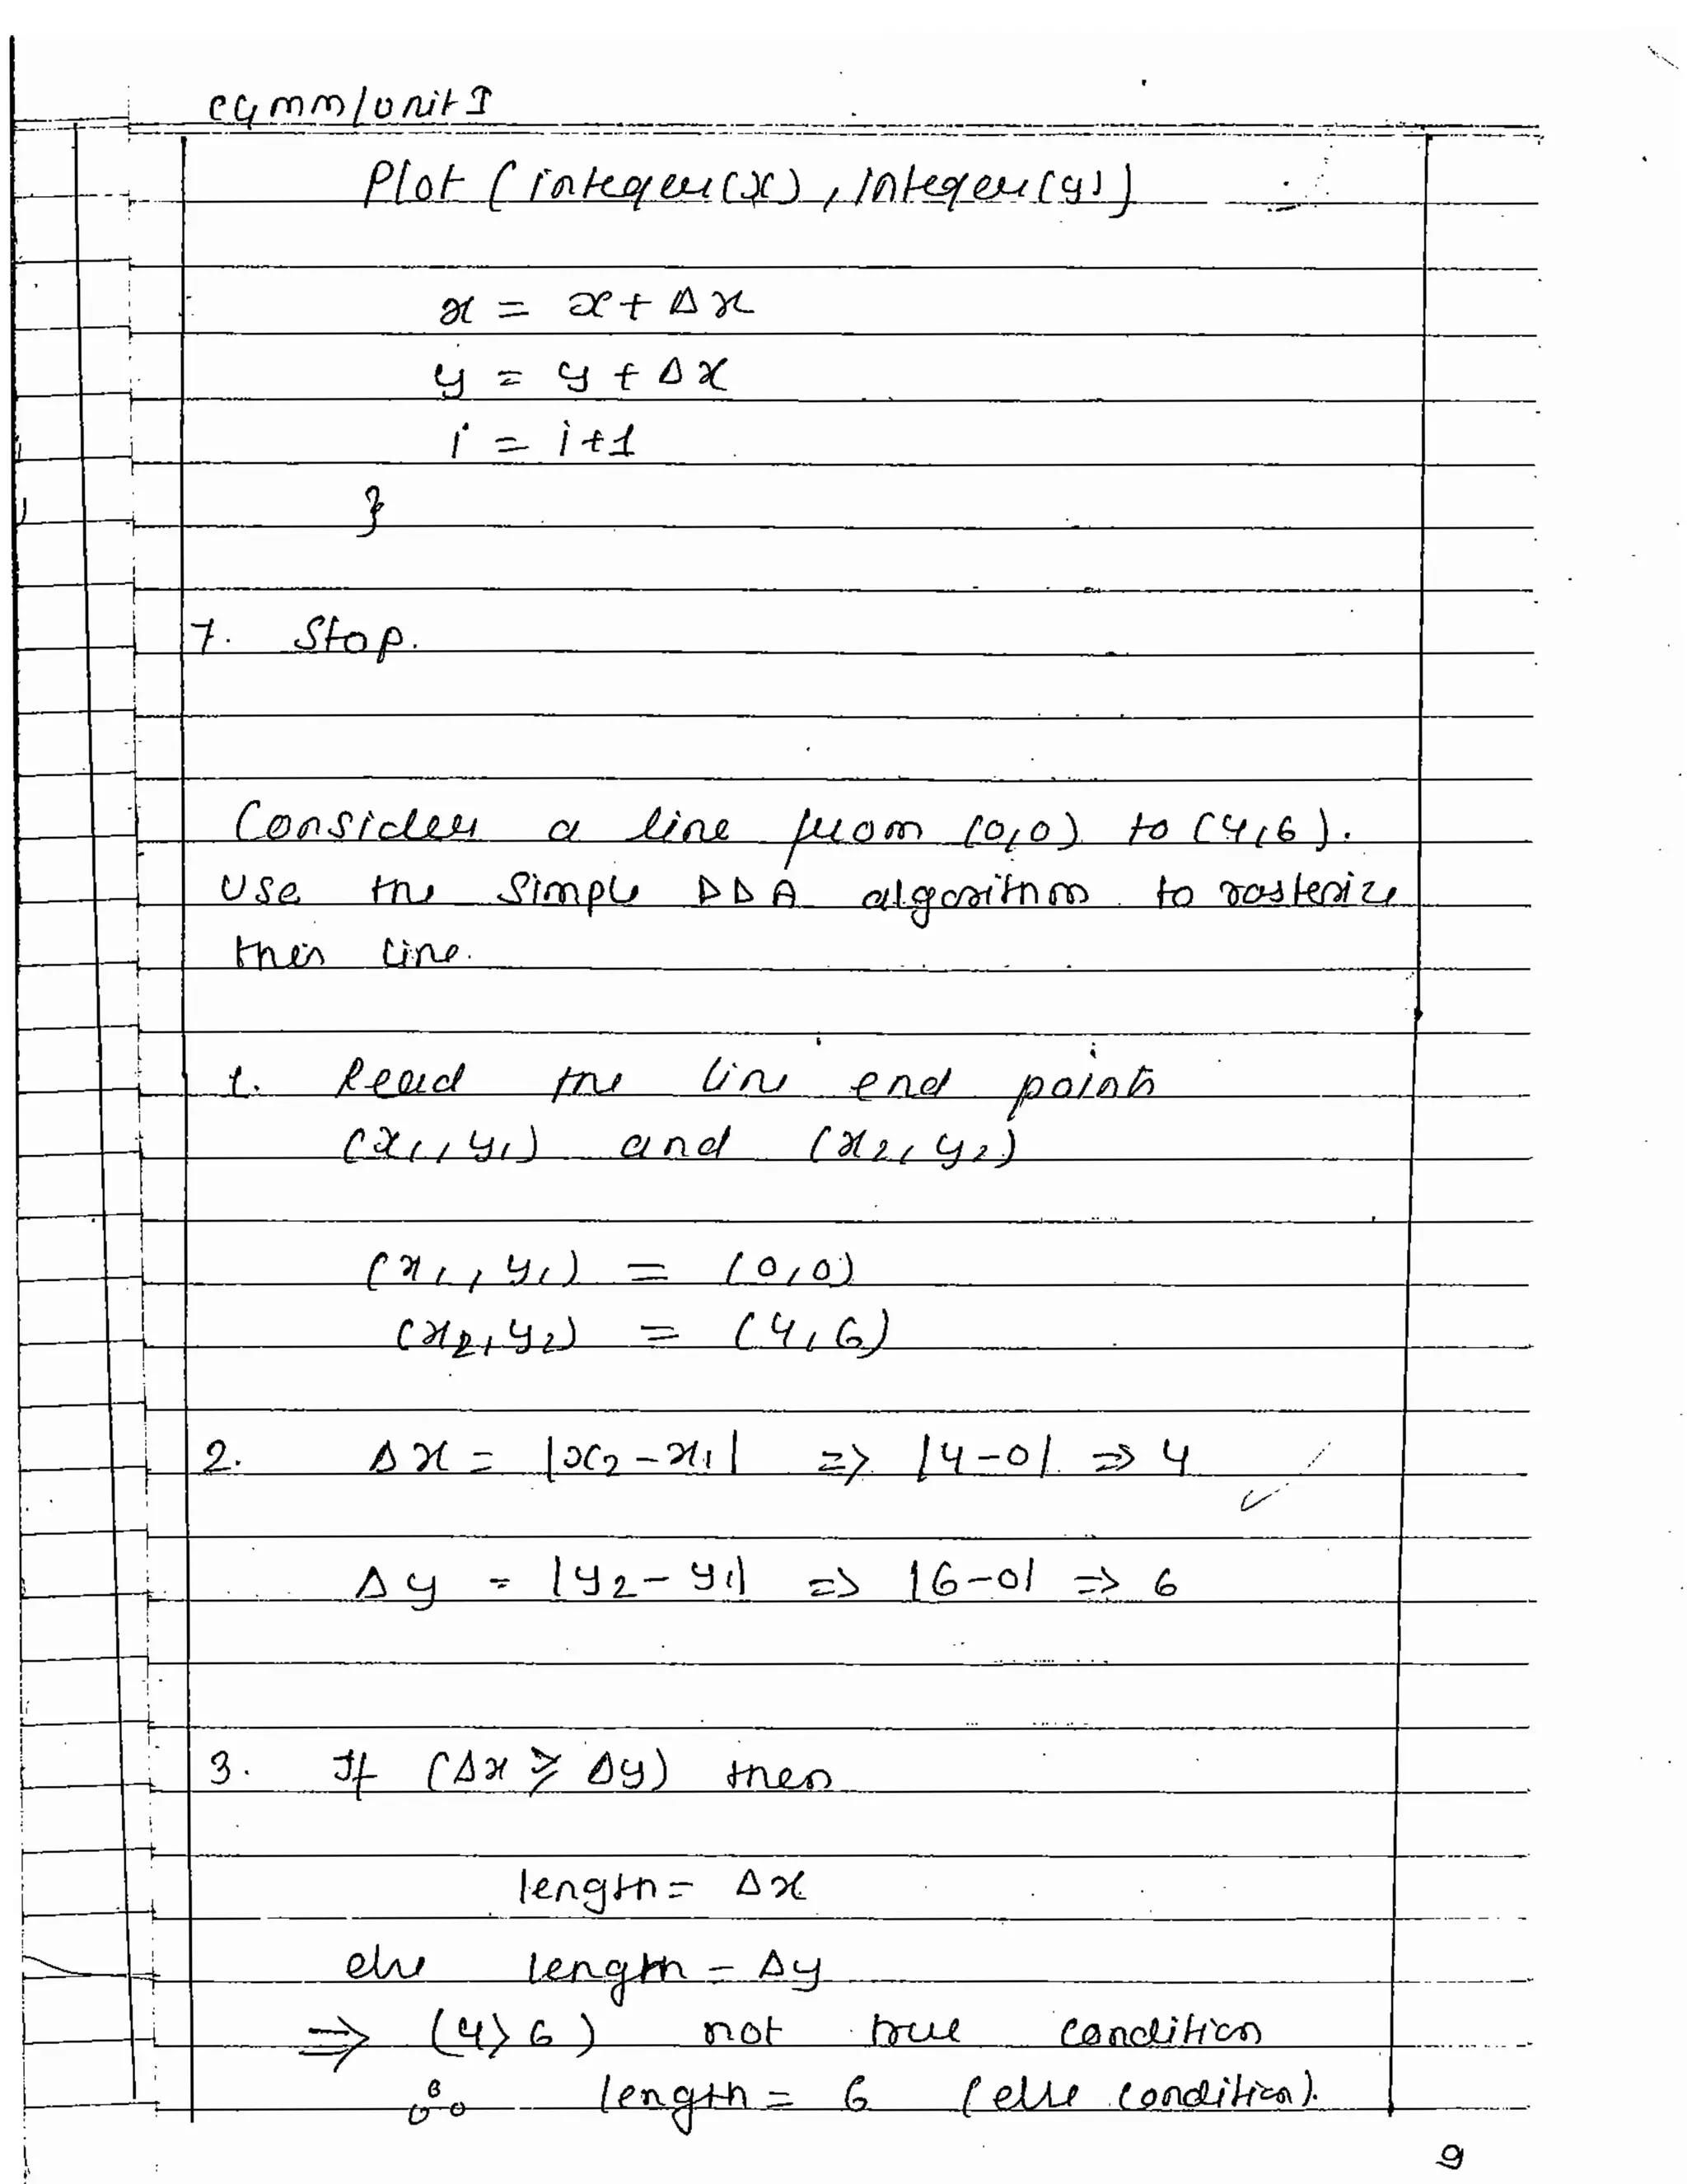 CGMM/Unit I
Plot (integer(x), integer(y))
x = x + Δx
y = y + Δx
i = i+1
}
7. Stop.
Consider a line from (0,0) to (4,6).
Use the simple DDA algorithm to rasterize
this line.
1. Read the line end points
(x1, y1) and (x2, y2)
(x1, y1) = (0,0)
(x2, y2) = (4,6)
2. Δx = |x2 - x1| => |4-0| => 4
Δy = |y2 - y1| => |6-0| => 6
3. If (Δx ≥ Δy) then
length = Δx
else length = Δy
=> (4>6) not true condition
∴ length = 6 (else condition).
9